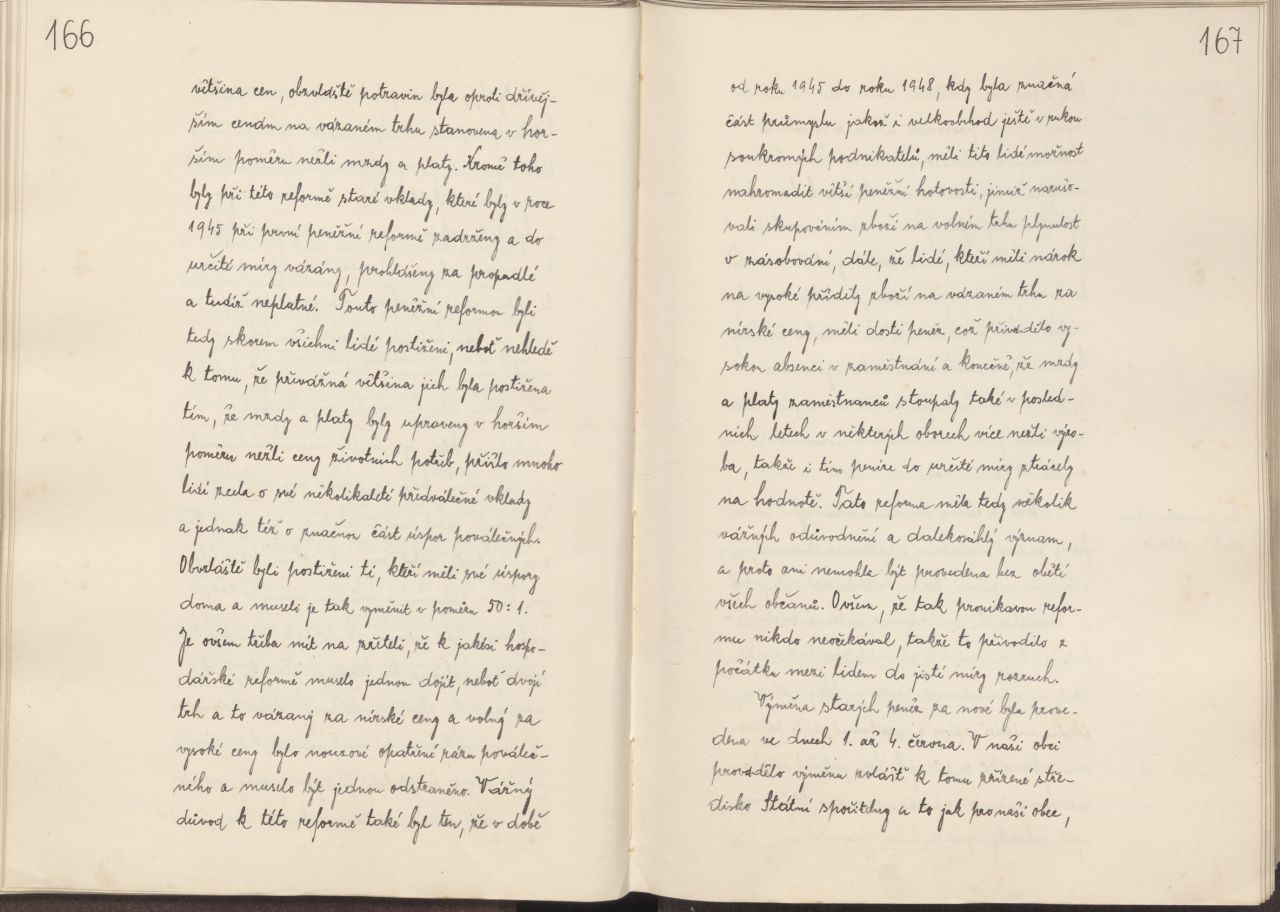 166
většina cen, obzvláště potravin byla oproti dřívěj-
ším cenám na vázaném trhu stanovena v hor-
ším poměru nežli mzdy a platy. Kromě toho
byly při této reformě staré vklady, které byly v roce
1945 při první peněžní reformě zadrženy a do
určité míry vázány, prohlášeny za propadlé
a tudíž neplatné. Touto peněžní reformou byli
tedy skorem všichni lidé postiženi, neboť nehledě
k tomu, že převážná většina jich byla postižena
tím, že mzdy a platy byly upraveny v horším
poměru nežli ceny životních potřeb, přišlo mnoho
lidí zcela o své několikaleté předválečné vklady
a jednak též o značnou část úspor poválečných.
Obzvláště byli postiženi ti, kteří měli své úspory
doma a museli je tak vyměnit v poměru 50:1.
Je ovšem třeba mít na zřeteli, že k jakési hospo-
dářské reformě muselo jednou dojít, neboť dvojí
trh a to vázaný za nízské ceny a volný za
vysoké ceny bylo nouzové opatření rázu pováleč-
ného a muselo být jednou odstraněno. Vážný
důvod k této reformě také byl ten, že v době
167
od roku 1945 do roku 1948, kdy byla značná
část průmyslu jakož i velkoobchod ještě v rukou
soukromých podnikatelů, měli tito lidé možnost
nahromadit větší peněžní hotovosti, jimiž narušo-
vali skupováním zboží na volném trhu plynulost
v zásobování, dále, že lidé, kteří měli nárok
na vysoké příděly zboží na vázaném trhu za
nízské ceny, měli dosti peněz, což přivodilo vy-
sokou absenci v zaměstnání a konečně, že mzdy
a platy zaměstnanců stoupaly také v posled-
ních letech v některých oborech více nežli výro-
ba, takže i tím peníze do určité míry ztrácely
na hodnotě. Tato reforma měla tedy několik
vážných odůvodnění a dalekosáhlý význam,
a proto ani nemohla být provedena bez obětí
všech občanů. Ovšem, že tak pronikavou refor-
mu nikdo neočekával, takže to přivodilo z
počátku mezi lidem do jisté míry rozruch.
Výměna starých peněz za nové byla prove-
dena ve dnech 1. až 4. června. V naší obci
provádělo výměnu zvlášť k tomu zřízené stře-
disko Státní spořitelny a to jak pro naši obec,